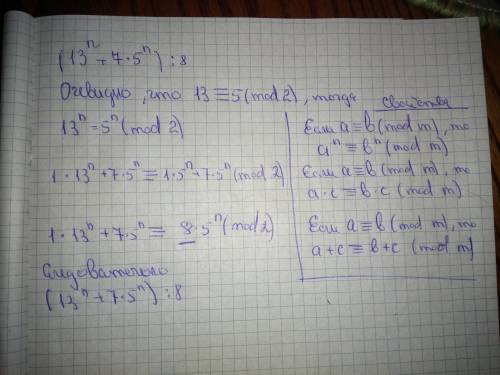 (13ⁿ + 7·5ⁿ) ⋮ 8
Очевидно, что 13 ≡ 5 (mod 2), тогда
13ⁿ ≡ 5ⁿ (mod 2)
1·13ⁿ + 7·5ⁿ ≡ 1·5ⁿ + 7·5ⁿ (mod 2)
1·13ⁿ + 7·5ⁿ ≡ 8·5ⁿ (mod 2)
Следовательно
(13ⁿ + 7·5ⁿ) ⋮ 8
Свойства
Если a ≡ b (mod m), то
aⁿ ≡ bⁿ (mod m)
Если a ≡ b (mod m), то
a·c ≡ b·c (mod m)
Если a ≡ b (mod m), то
a+c ≡ b+c (mod m)